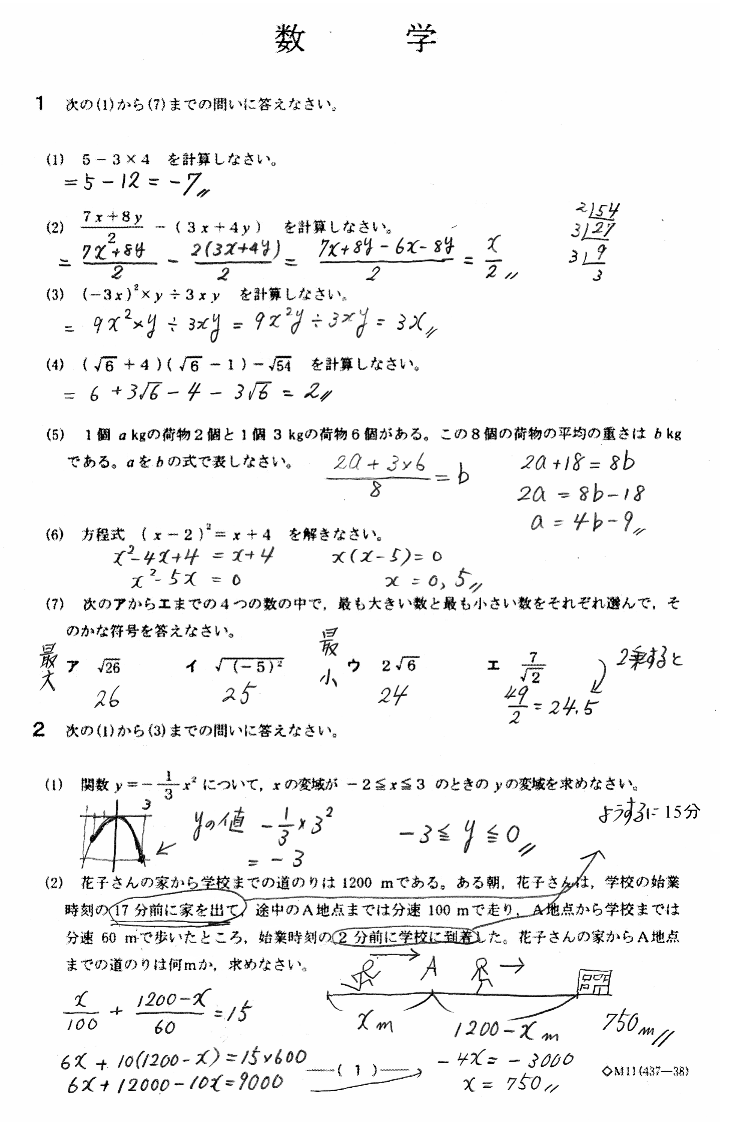 数 学
1 次の(1)から(7)までの問いに答えなさい。
(1) 5－3×4 を計算しなさい。
=5-12=-7〃
(2) (7x+8y)/2 －(3x+4y) を計算しなさい。
= (7x+8y)/2 - 2(3x+4y)/2 = (7x+8y-6x-8y)/2 = x/2〃
2)54
3)27
3)9
3
(3) (－3x)²×y÷3xy を計算しなさい。
= 9x²×y÷3xy = 9x²y÷3xy = 3x〃
(4) (√6＋4)(√6－1)－√54 を計算しなさい。
= 6+3√6-4-3√6 = 2〃
(5) 1個 a kgの荷物2個と1個 3 kgの荷物6個がある。この8個の荷物の平均の重さは b kg
である。aをbの式で表しなさい。
(2a+3×6)/8 = b
2a+18=8b
2a=8b-18
a=4b-9〃
(6) 方程式 (x－2)²＝x＋4 を解きなさい。
x²-4x+4=x+4
x²-5x=0
x(x-5)=0
x=0,5〃
(7) 次のアからエまでの4つの数の中で，最も大きい数と最も小さい数をそれぞれ選んで，そ
のかな符号を答えなさい。
最大 ア √26 イ √(－5)² 最小 ウ 2√6 エ 7/√2 2乗すると
26 25 24 49/2=24.5
2 次の(1)から(3)までの問いに答えなさい。
(1) 関数 y＝－1/3 x² について，xの変域が －2≦x≦3 のときの yの変域を求めなさい。
3
yの値 -1/3×3²
=-3
-3≦y≦0〃
ようするに15分
(2) 花子さんの家から学校までの道のりは 1200 mである。ある朝，花子さんは，学校の始業
時刻の17分前に家を出て，途中のA地点までは分速 100 mで走り，A地点から学校までは
分速 60 mで歩いたところ，始業時刻の2分前に学校に到着した。花子さんの家からA地点
までの道のりは何mか，求めなさい。
A
xm 1200-xm
750m〃
x/100 + (1200-x)/60 =15
6x+10(1200-x)=15×600
6x+12000-10x=9000
-4x=-3000
x=750〃
—( 1 )—
◇M11(437—38)